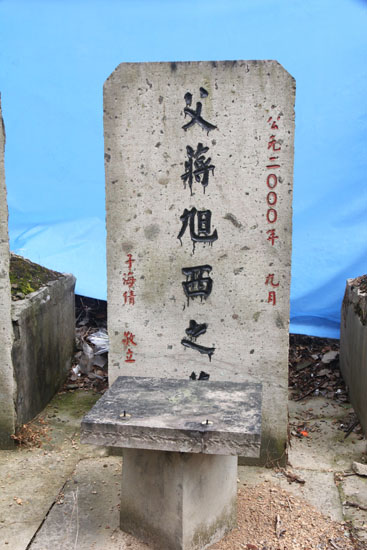 公元二000年 九月
父蒋旭西之
子海倩 敬立